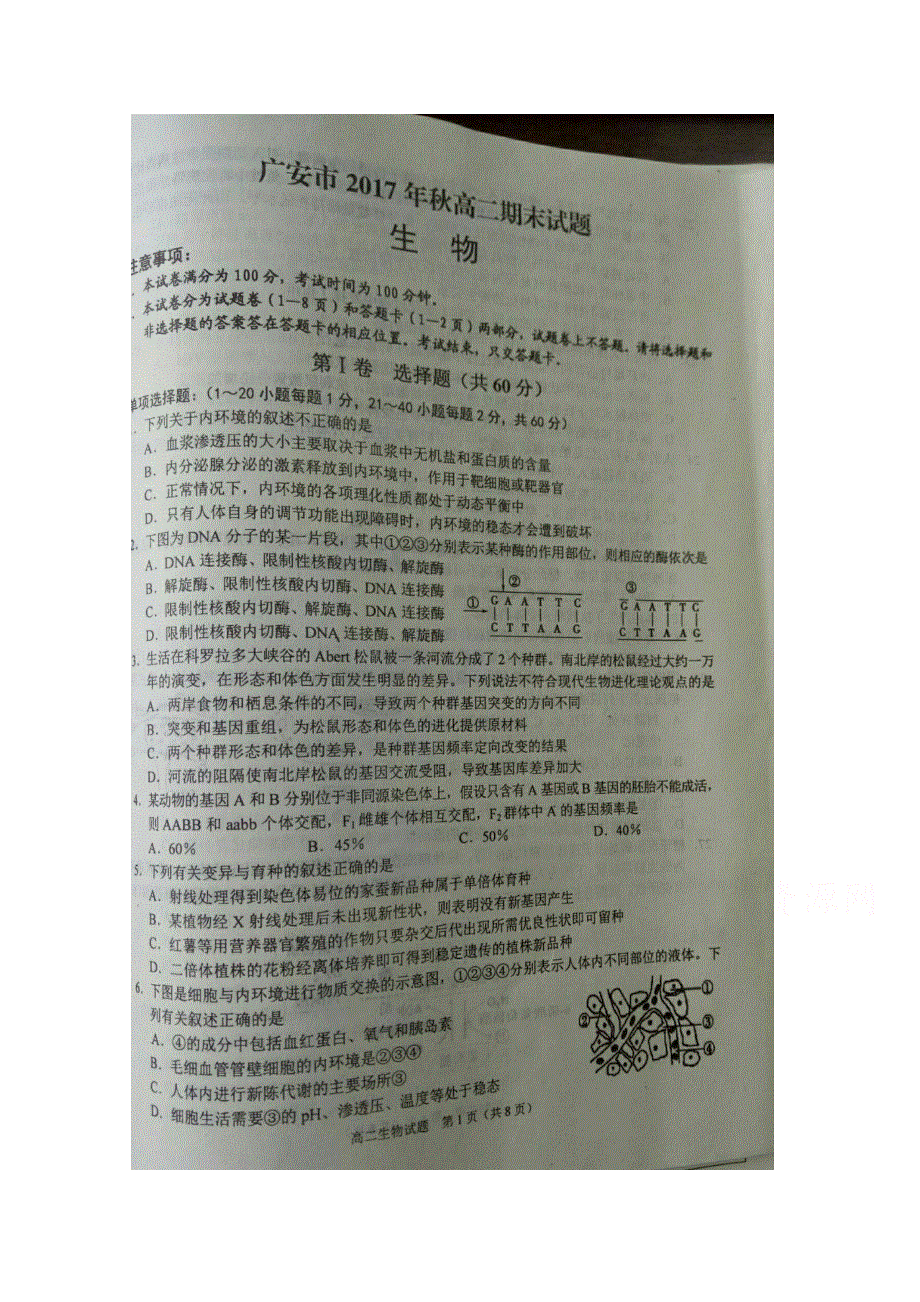 广安市 2017 年秋高二期末试题
生 物
注意事项：
本试卷满分为 100 分，考试时间为 100 分钟。
本试卷分为试题卷（1—8 页）和答题卡（1—2 页）两部分，试题卷上不答题。请将选择题和
非选择题的答案答在答题卡的相应位置。考试结束，只交答题卡。
第Ⅰ卷 选择题（共 60 分）
单项选择题：（1～20 小题每题 1 分，21～40 小题每题 2 分，共 60 分）
下列关于内环境的叙述不正确的是
A．血浆渗透压的大小主要取决于血浆中无机盐和蛋白质的含量
B．内分泌腺分泌的激素释放到内环境中，作用于靶细胞或靶器官
C．正常情况下，内环境的各项理化性质都处于动态平衡中
D．只有人体自身的调节功能出现障碍时，内环境的稳态才会遭到破坏
2．下图为 DNA 分子的某一片段，其中①②③分别表示某种酶的作用部位，则相应的酶依次是
A．DNA 连接酶、限制性核酸内切酶、解旋酶
B．解旋酶、限制性核酸内切酶、DNA 连接酶
C．限制性核酸内切酶、解旋酶、DNA 连接酶
D．限制性核酸内切酶、DNA 连接酶、解旋酶
① ② ③
G A A T T C G A A T T C
C T T A A G C T T A A G
3．生活在科罗拉多大峡谷的 Abert 松鼠被一条河流分成了 2 个种群。南北岸的松鼠经过大约一万
年的演变，在形态和体色方面发生明显的差异。下列说法不符合现代生物进化理论观点的是
A．两岸食物和栖息条件的不同，导致两个种群基因突变的方向不同
B．突变和基因重组，为松鼠形态和体色的进化提供原材料
C．两个种群形态和体色的差异，是种群基因频率定向改变的结果
D．河流的阻隔使南北岸松鼠的基因交流受阻，导致基因库差异加大
4．某动物的基因 A 和 B 分别位于非同源染色体上，假设只含有 A 基因或 B 基因的胚胎不能成活，
则 AABB 和 aabb 个体交配，F₁ 雌雄个体相互交配，F₂ 群体中 A 的基因频率是
A．60% B．45% C．50% D．40%
5．下列有关变异与育种的叙述正确的是
A．射线处理得到染色体易位的家蚕新品种属于单倍体育种
B．某植物经 X 射线处理后未出现新性状，则表明没有新基因产生
C．红薯等用营养器官繁殖的作物只要杂交后代出现所需优良性状即可留种
D．二倍体植株的花粉经离体培养即可得到稳定遗传的植株新品种
6．下图是细胞与内环境进行物质交换的示意图，①②③④分别表示人体内不同部位的液体。下
列有关叙述正确的是
A．④的成分中包括血红蛋白、氧气和胰岛素
B．毛细血管管壁细胞的内环境是②③④
C．人体内进行新陈代谢的主要场所③
D．细胞生活需要③的 pH、渗透压、温度等处于稳态
① ② ③ ④
高二生物试题 第 1 页（共 8 页）